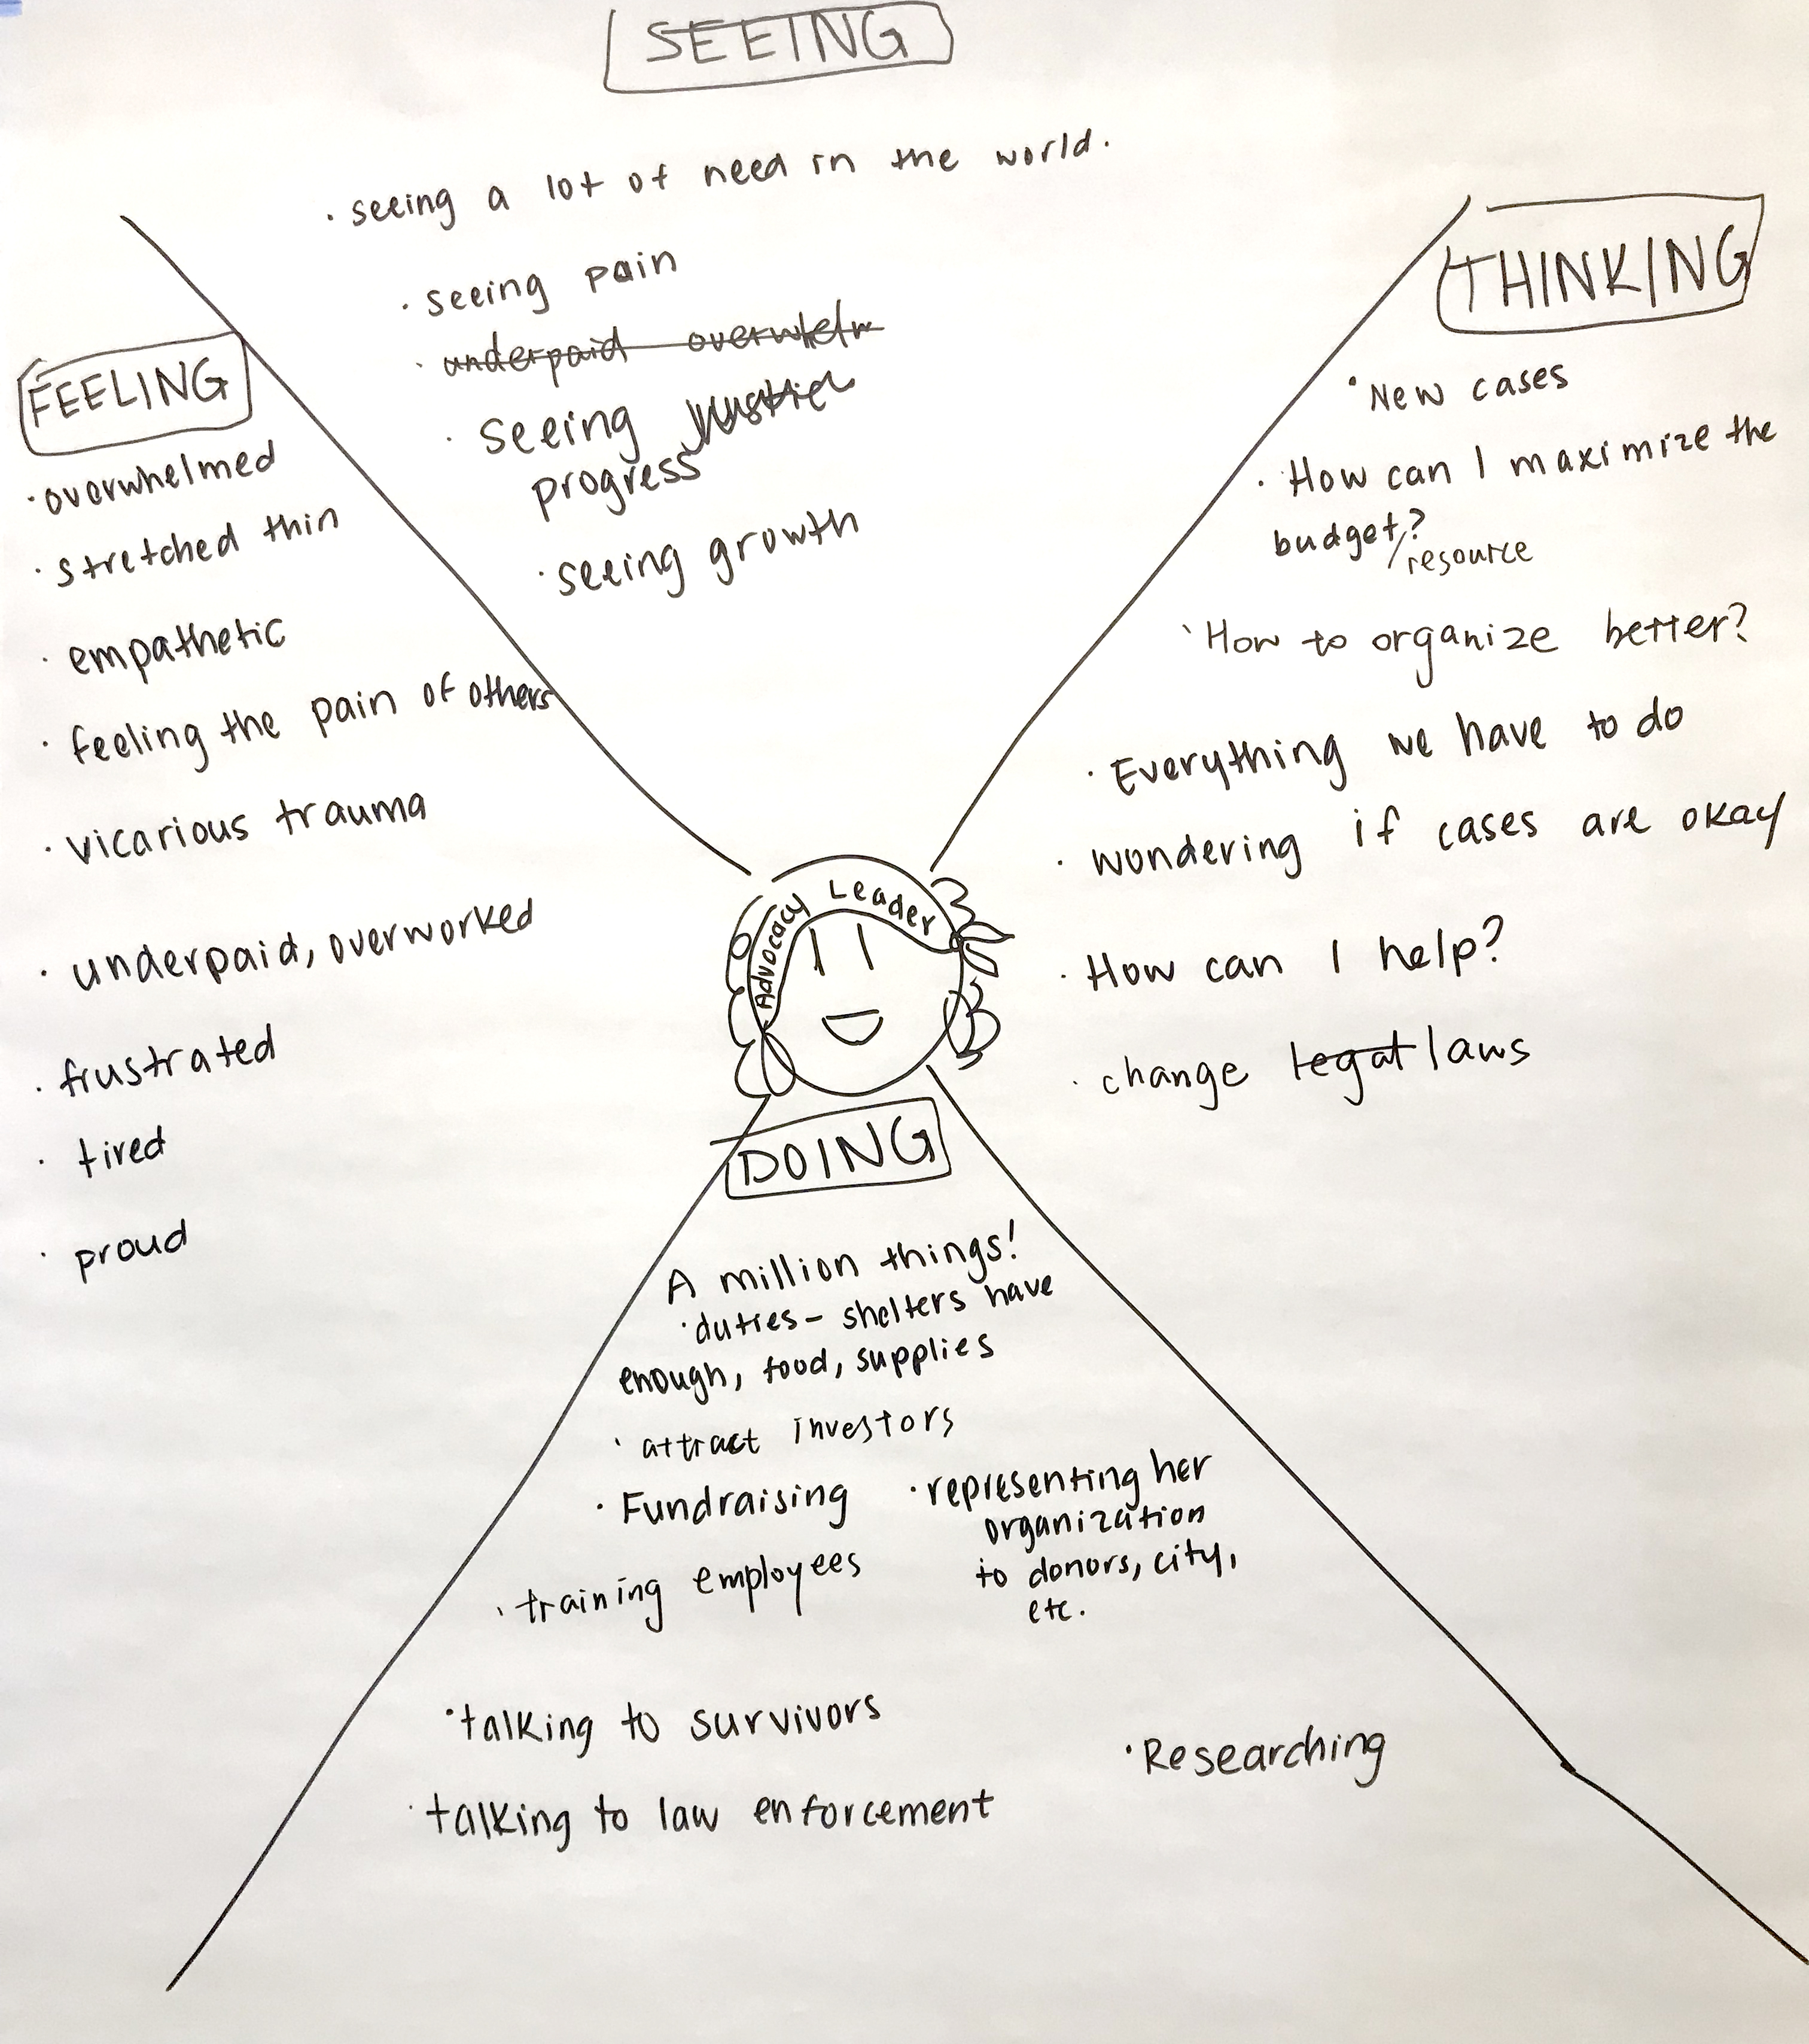 SEEING
· seeing a lot of need in the world.
· seeing pain
· underpaid overwhelm
· seeing
progress
· seeing growth
FEELING
· overwhelmed
· stretched thin
· empathetic
· feeling the pain of others
· vicarious trauma
· underpaid, overworked
· frustrated
· tired
· proud
THINKING
· New cases
· How can I maximize the
budget/?
resource
· How to organize better?
· Everything we have to do
· wondering if cases are okay
· How can I help?
· change legal laws
Advocacy Leader
DOING
A million things!
· duties - shelters have
enough, food, supplies
· attract investors
· Fundraising
· representing her
organization
to donors, city,
etc.
· training employees
· talking to survivors
· Researching
· talking to law enforcement